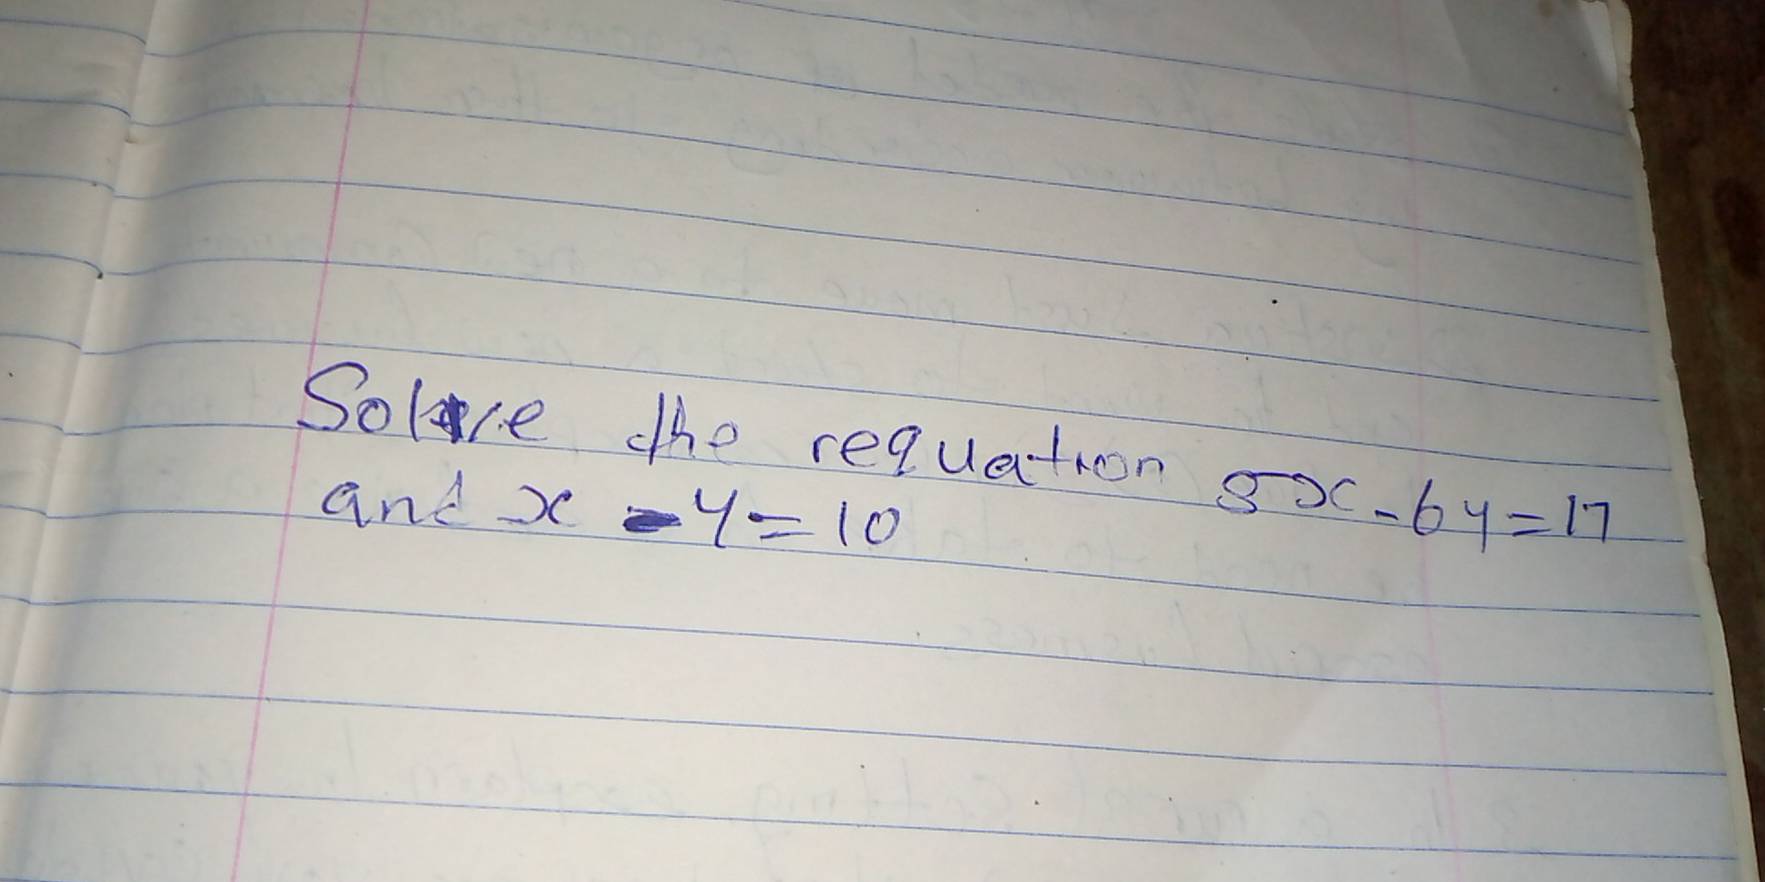 Solve the requation 5x - 6y = 17
and x - y = 10